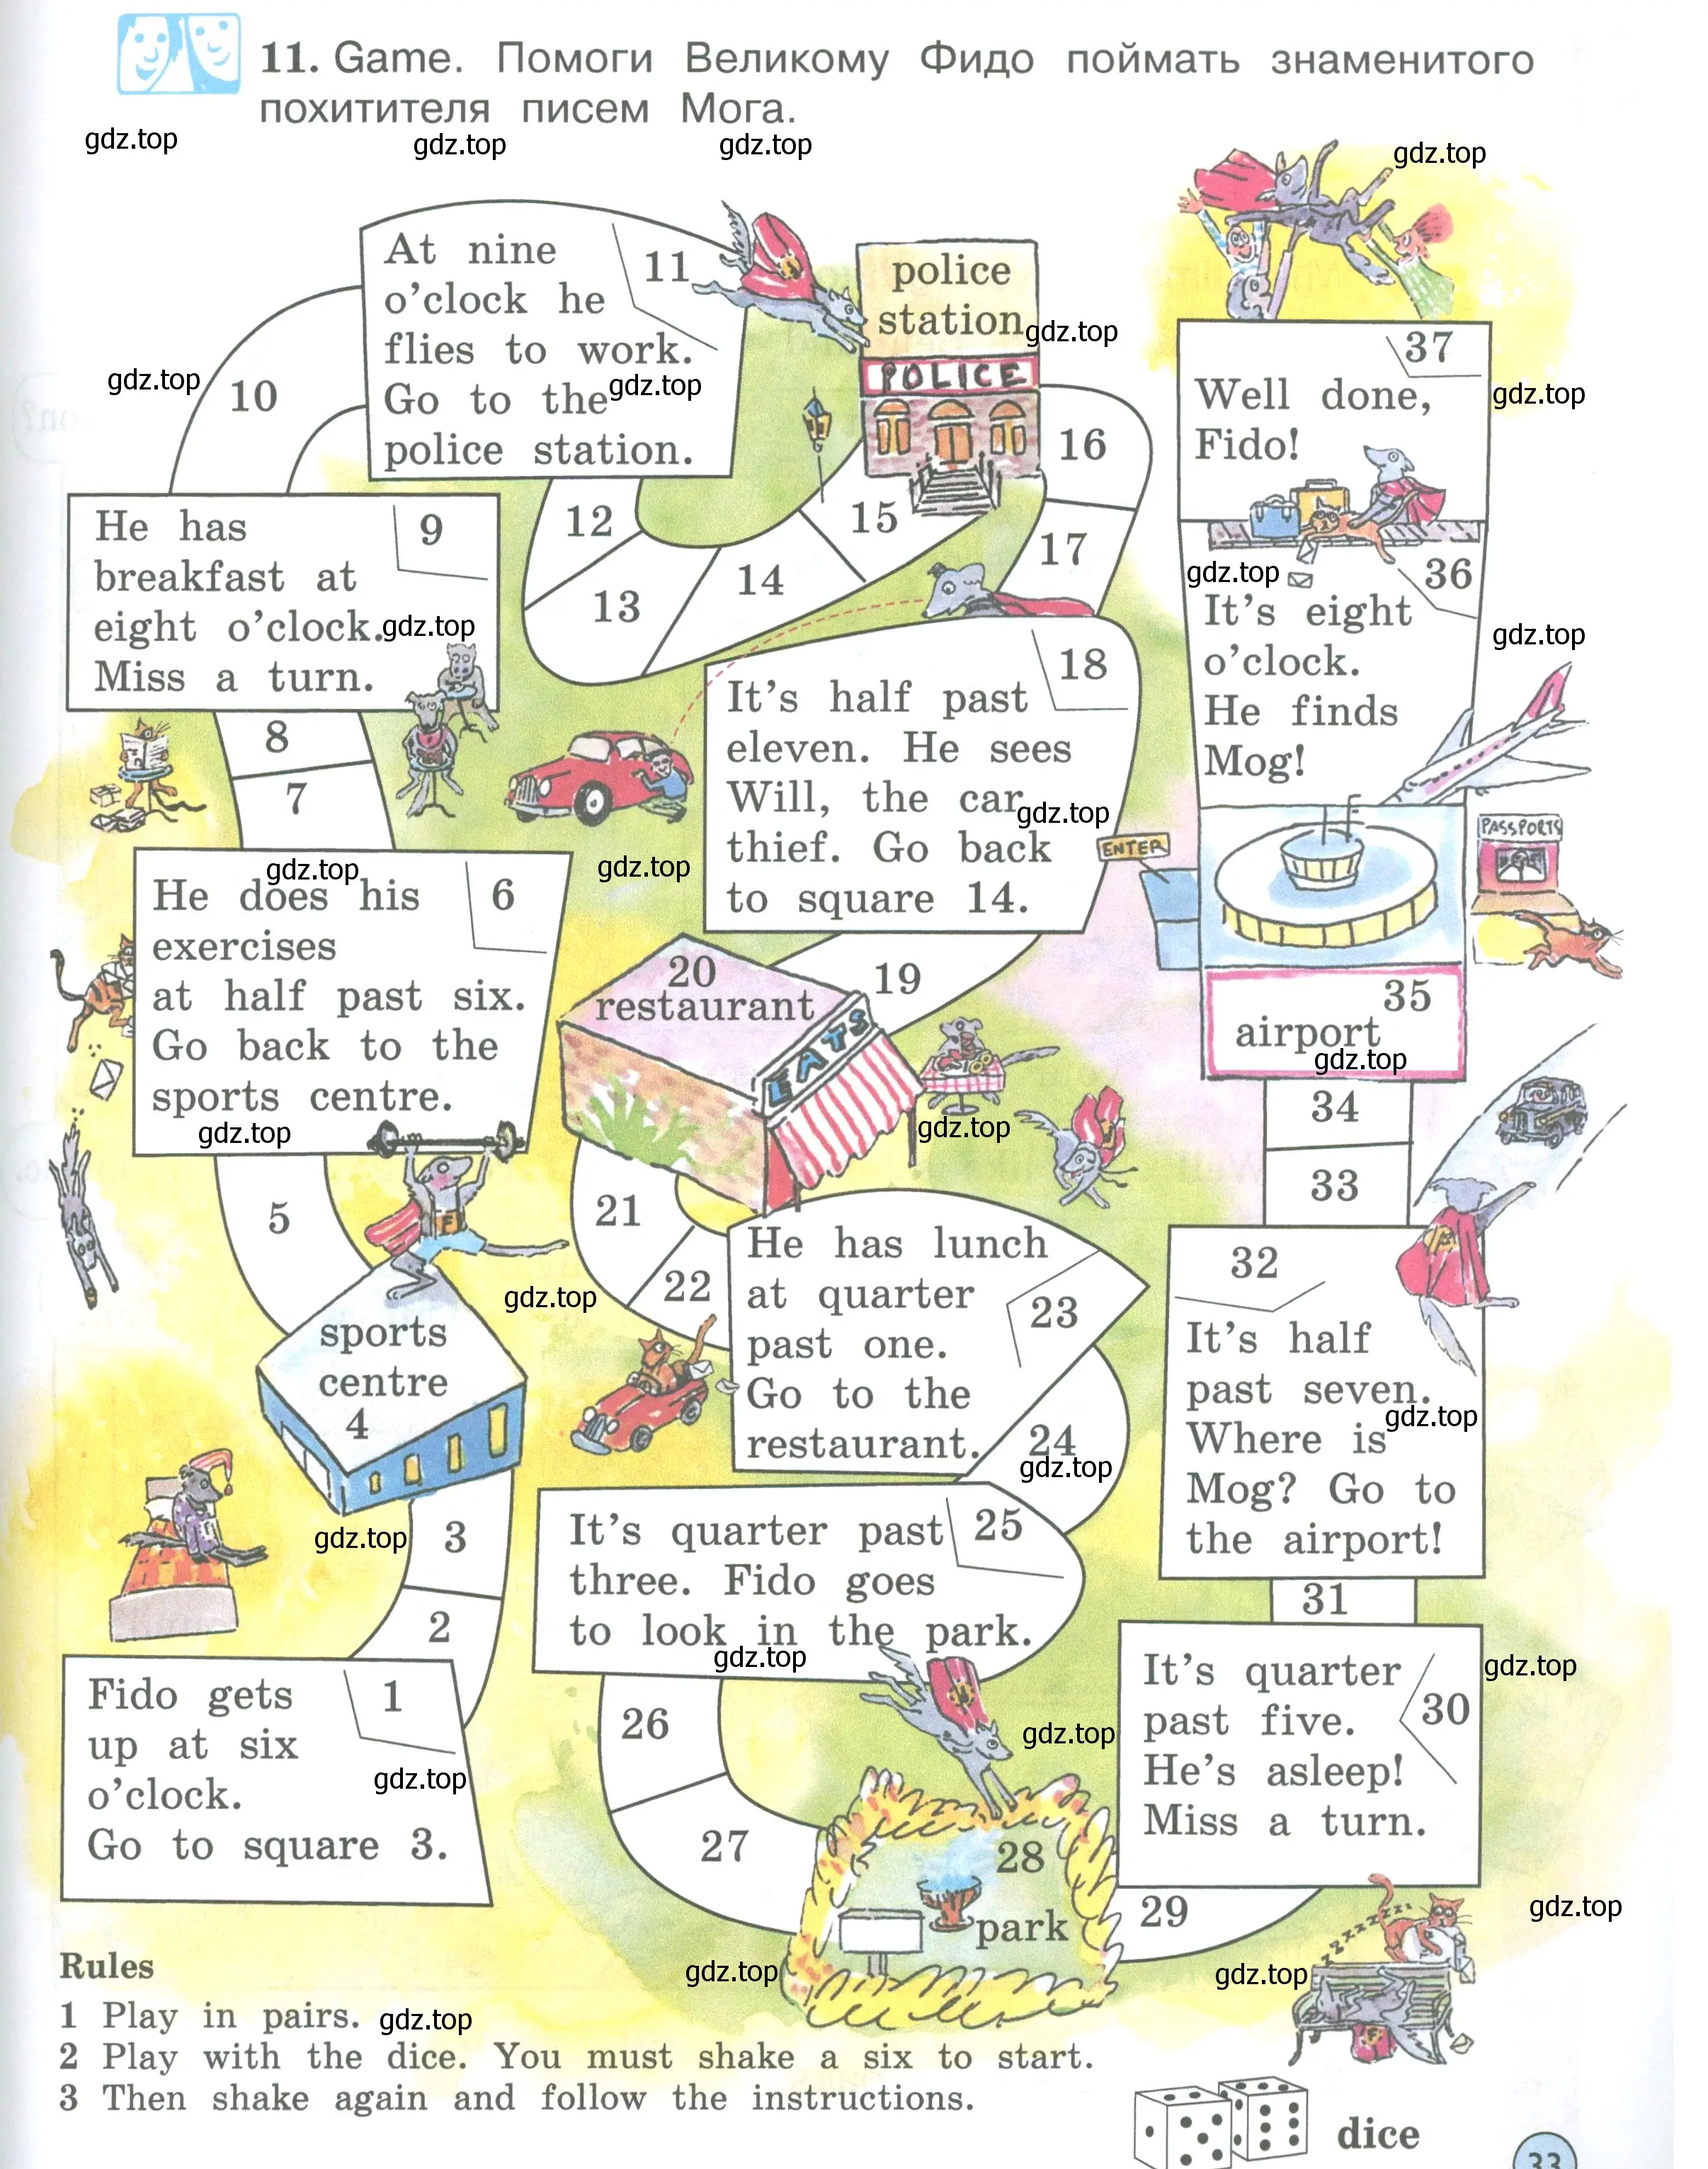 11. Game. Помоги Великому Фидо поймать знаменитого
похитителя писем Мога.
gdz.top
gdz.top
gdz.top
gdz.top
At nine
o'clock he
flies to work.
Go to the
police station.
11
police
station
POLICE
gdz.top
gdz.top
gdz.top
gdz.top
10
37
Well done,
Fido!
16
12
15
17
14
13
He has
breakfast at
eight o'clock.
Miss a turn.
9
gdz.top
gdz.top
36
It's eight
o'clock.
He finds
Mog!
gdz.top
18
It's half past
eleven. He sees
Will, the car
thief. Go back
to square 14.
gdz.top
8
7
gdz.top
gdz.top
ENTER
PASSPORTS
He does his
exercises
at half past six.
Go back to the
sports centre.
6
gdz.top
20
restaurant
EATS
19
35
airport
gdz.top
34
33
gdz.top
5
21
22
He has lunch
at quarter
past one.
Go to the
restaurant.
23
32
It's half
past seven.
Where is
Mog? Go to
the airport!
gdz.top
gdz.top
F
sports
centre
4
24
gdz.top
gdz.top
3
2
It's quarter past
three. Fido goes
to look in the park.
25
gdz.top
31
It's quarter
past five.
He's asleep!
Miss a turn.
30
gdz.top
Fido gets
up at six
o'clock.
Go to square 3.
1
gdz.top
26
gdz.top
27
28
park
29
gdz.top
gdz.top
gdz.top
zzzzzzzz
F
Rules
1 Play in pairs.
gdz.top
2 Play with the dice. You must shake a six to start.
3 Then shake again and follow the instructions.
dice
33